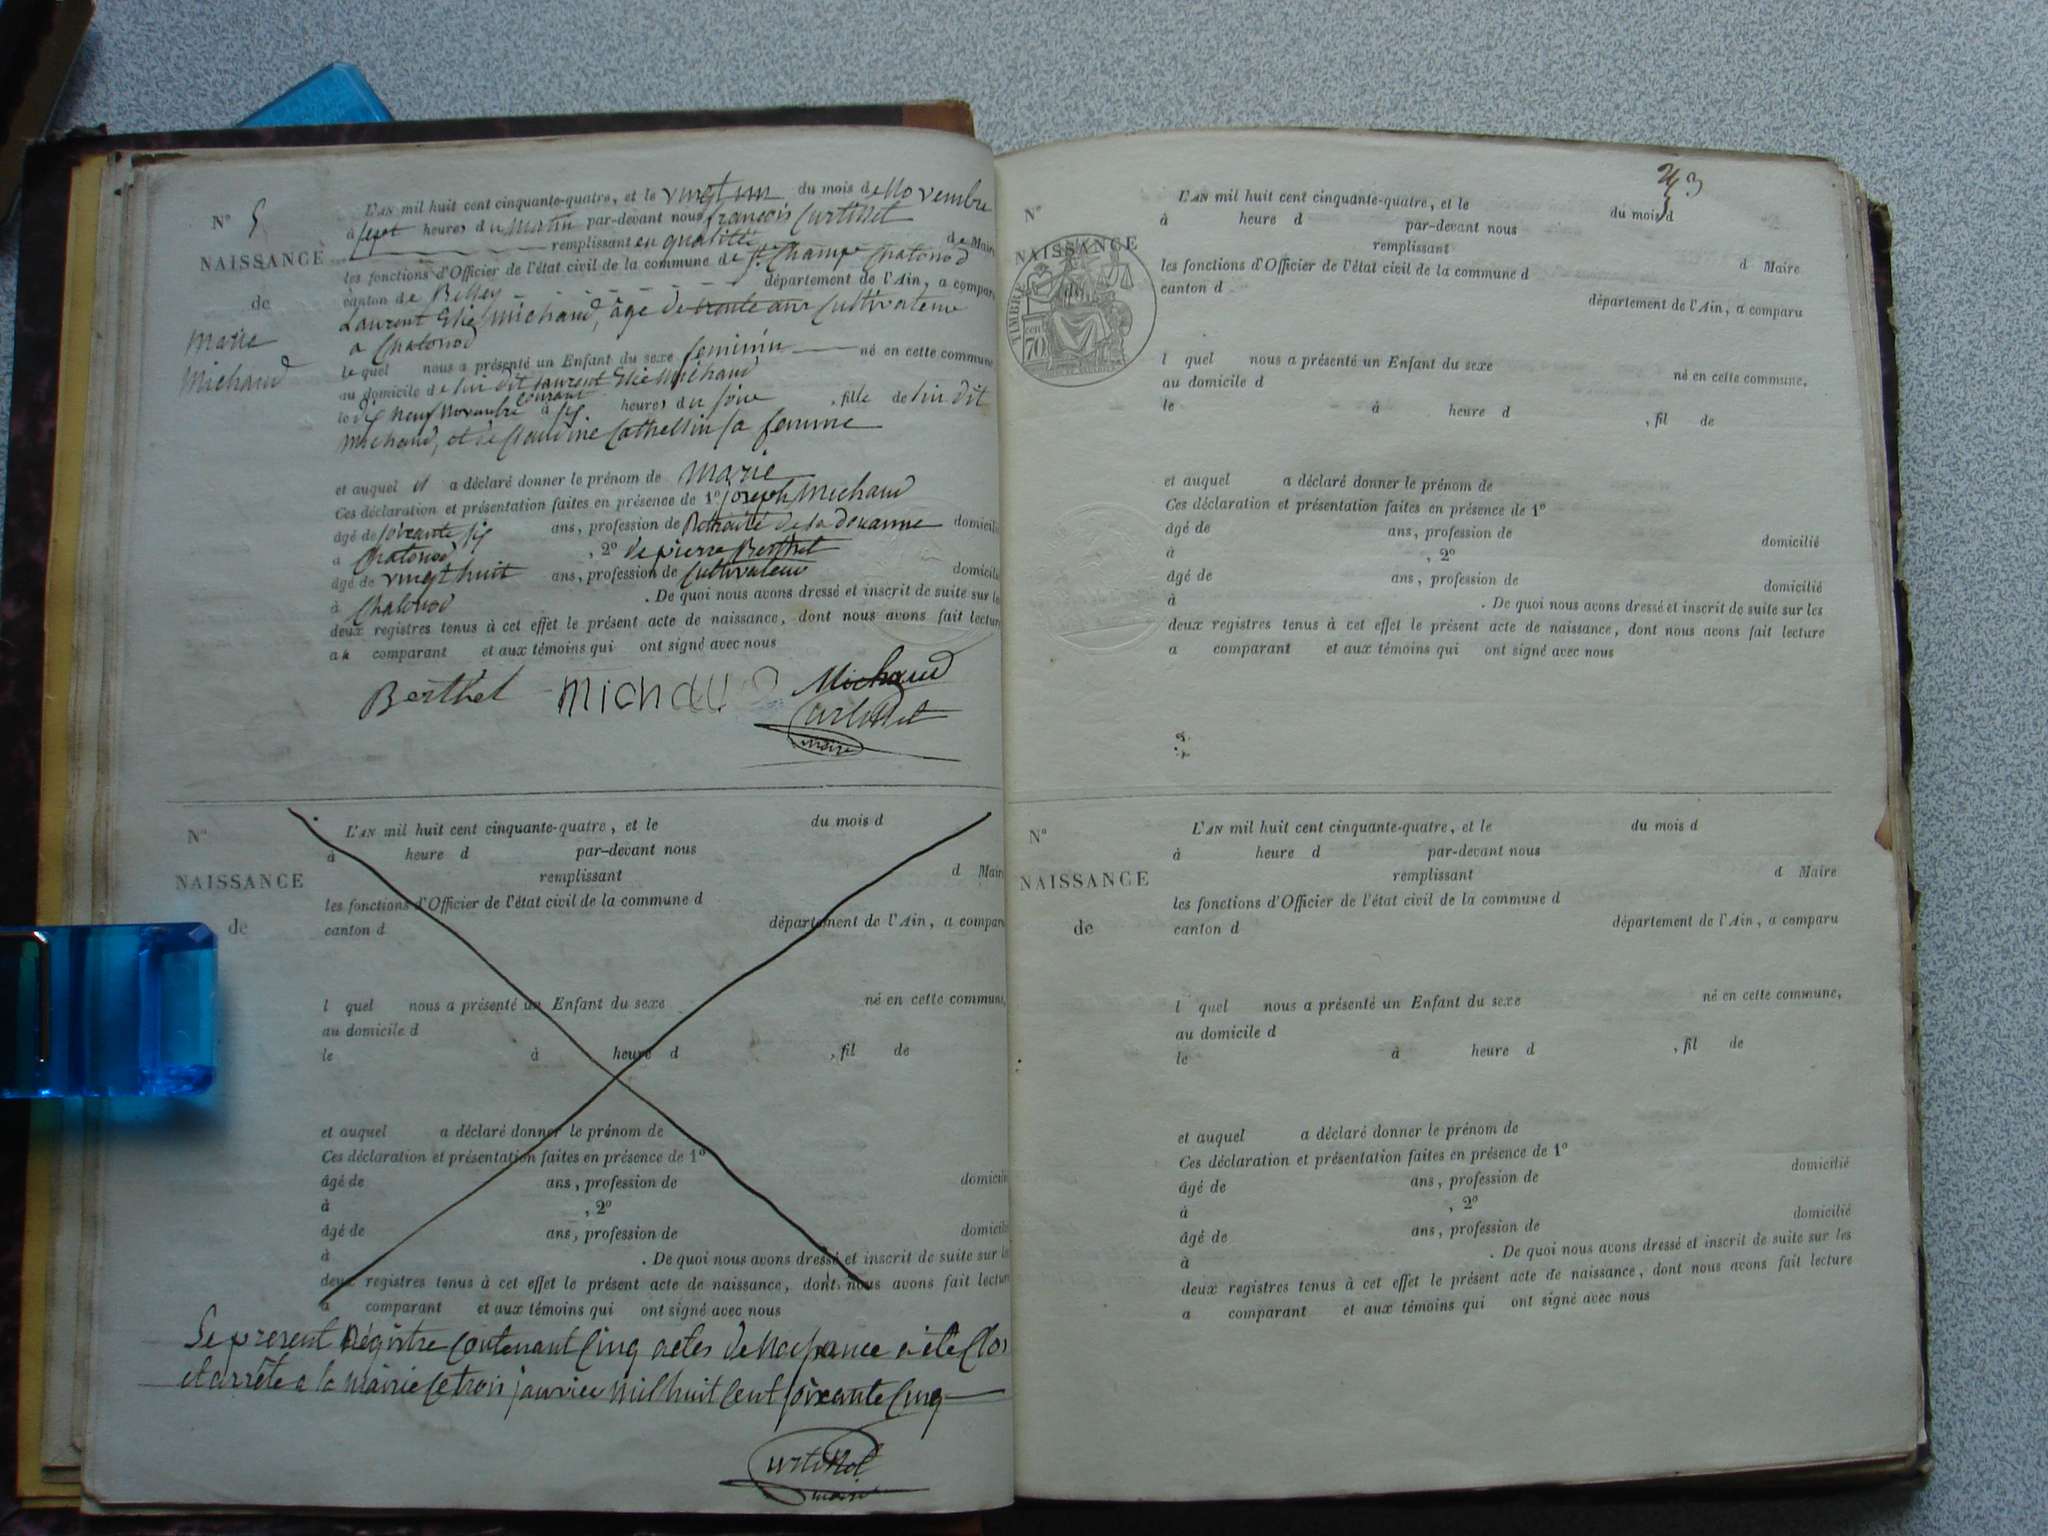 N° 5
NAISSANCE
de
Marie
Michaud
L'AN mil huit cent cinquante-quatre, et le vingt un du mois de Novembre
à sept heures du matin par-devant nous françois Curtillet
remplissant en qualité de Maire
les fonctions d'Officier de l'état civil de la commune de St. Champ Chatonod
canton de Belley département de l'Ain, a comparu
Laurent Elie Michaud, âgé de trente ans Cultivateur
a Chatonod
le quel nous a présenté un Enfant du sexe feminin né en cette commune
au domicile de lui dit Laurent Elie Michaud
le dix neuf Novembre courant à six heures du soir, fille de lui dit
Michaud, et de Claudine Cathellin sa femme
et auquel il a déclaré donner le prénom de Marie
Ces déclaration et présentation faites en présence de 1° joseph Michaud
âgé de soixante six ans, profession de Retraité de la douanne domicilié
à Chatonod, 2° de pierre Berthet
âgé de vingt huit ans, profession de Cultivateur domicilié
à Chatonod. De quoi nous avons dressé et inscrit de suite sur les
deux registres tenus à cet effet le présent acte de naissance, dont nous avons fait lecture
au comparant et aux témoins qui ont signé avec nous
Berthet Michaud Michaud
Curtillet
maire
N°
NAISSANCE
de
L'AN mil huit cent cinquante-quatre, et le du mois d
à heure d par-devant nous
remplissant d Maire
les fonctions d'Officier de l'état civil de la commune d
canton d département de l'Ain, a comparu
l quel nous a présenté un Enfant du sexe né en cette commune,
au domicile d
le à heure d , fil de
et auquel a déclaré donner le prénom de
Ces déclaration et présentation faites en présence de 1°
âgé de ans, profession de domicilié
à , 2°
âgé de ans, profession de domicilié
à . De quoi nous avons dressé et inscrit de suite sur les
deux registres tenus à cet effet le présent acte de naissance, dont nous avons fait lecture
a comparant et aux témoins qui ont signé avec nous
Le present Régistre contenant Cinq actes de Naissance a été Clos
et arrêté a la Mairie le trois janvier mil huit cent soixante Cinq
Curtillet
maire
3
N°
NAISSANCE
de
TIMBRE
70 cen
L'AN mil huit cent cinquante-quatre, et le du mois d
à heure d par-devant nous
remplissant d Maire
les fonctions d'Officier de l'état civil de la commune d
canton d département de l'Ain, a comparu
l quel nous a présenté un Enfant du sexe né en cette commune,
au domicile d
le à heure d , fil de
et auquel a déclaré donner le prénom de
Ces déclaration et présentation faites en présence de 1°
âgé de ans, profession de domicilié
à , 2°
âgé de ans, profession de domicilié
à . De quoi nous avons dressé et inscrit de suite sur les
deux registres tenus à cet effet le présent acte de naissance, dont nous avons fait lecture
a comparant et aux témoins qui ont signé avec nous
N°
NAISSANCE
de
L'AN mil huit cent cinquante-quatre, et le du mois d
à heure d par-devant nous
remplissant d Maire
les fonctions d'Officier de l'état civil de la commune d
canton d département de l'Ain, a comparu
l quel nous a présenté un Enfant du sexe né en cette commune,
au domicile d
le à heure d , fil de
et auquel a déclaré donner le prénom de
Ces déclaration et présentation faites en présence de 1°
âgé de ans, profession de domicilié
à , 2°
âgé de ans, profession de domicilié
à . De quoi nous avons dressé et inscrit de suite sur les
deux registres tenus à cet effet le présent acte de naissance, dont nous avons fait lecture
a comparant et aux témoins qui ont signé avec nous